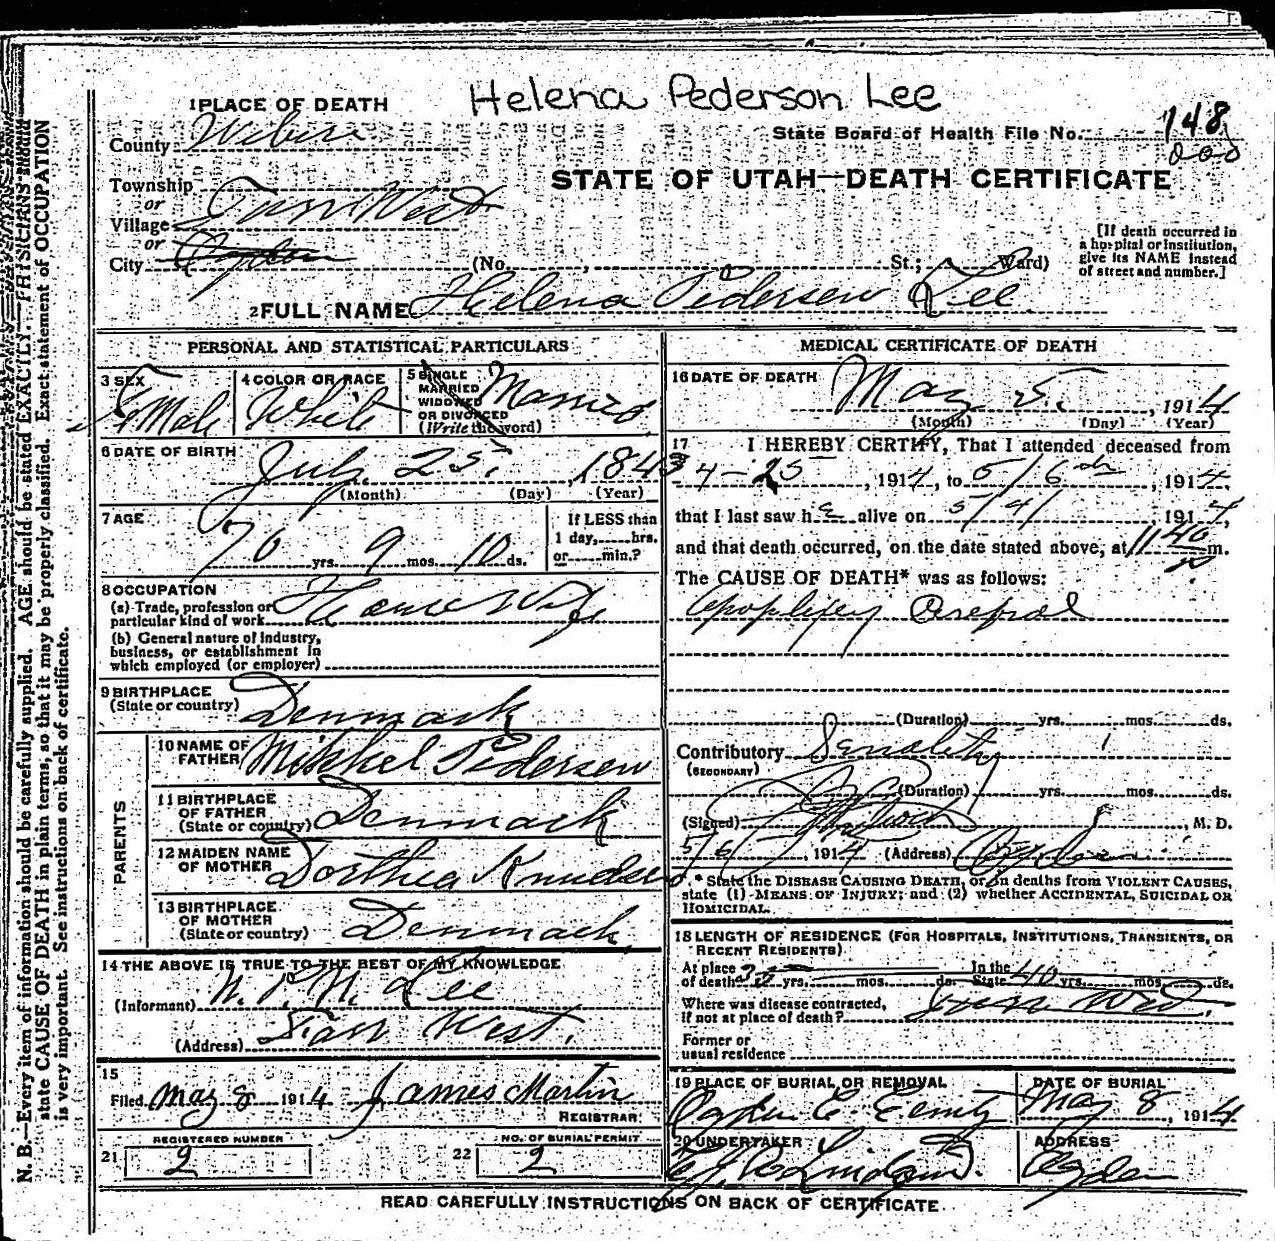 Helena Pederson Lee
1 PLACE OF DEATH
State Board of Health File No. 148
County Weber
STATE OF UTAH—DEATH CERTIFICATE
Township
or
Village Farr West
or
City Ogden (No. , St.; Ward)
[If death occurred in
a hospital or institution,
give its NAME instead
of street and number.]
2 FULL NAME Helena Pedersen Lee
PERSONAL AND STATISTICAL PARTICULARS
3 SEX Female
4 COLOR OR RACE White
5 SINGLE
MARRIED
WIDOWED
OR DIVORCED
(Write the word)
Married
6 DATE OF BIRTH July 25, 1843
(Month) (Day) (Year)
7 AGE 70 yrs. 9 mos. 10 ds.
If LESS than
1 day, hrs.
or min.?
8 OCCUPATION
(a) Trade, profession or
particular kind of work House Wife
(b) General nature of industry,
business, or establishment in
which employed (or employer)
9 BIRTHPLACE
(State or country) Denmark
PARENTS
10 NAME OF
FATHER Mikkel Pedersen
11 BIRTHPLACE
OF FATHER
(State or country) Denmark
12 MAIDEN NAME
OF MOTHER Dorthea Knudsen
13 BIRTHPLACE
OF MOTHER
(State or country) Denmark
14 THE ABOVE IS TRUE TO THE BEST OF MY KNOWLEDGE
(Informant) Lee
(Address) Farr West.
15
Filed May 8 1914 James Martin
REGISTRAR
REGISTERED NUMBER
21 2
NO. OF BURIAL PERMIT
22 2
MEDICAL CERTIFICATE OF DEATH
16 DATE OF DEATH May 5, 1914
(Month) (Day) (Year)
17 I HEREBY CERTIFY, That I attended deceased from
4-25, 1914, to 5/6th, 1914,
that I last saw her alive on 5/4/ 1914,
and that death occurred, on the date stated above, at 1140 m.
The CAUSE OF DEATH* was as follows:
(Duration) yrs. mos. ds.
Contributory Senility
(SECONDARY)
(Duration) yrs. mos. ds.
(Signed) , M. D.
5/6, 1914 (Address) Ogden
* State the DISEASE CAUSING DEATH, or, in deaths from VIOLENT CAUSES,
state (1) MEANS OF INJURY; and (2) whether ACCIDENTAL, SUICIDAL OR
HOMICIDAL.
18 LENGTH OF RESIDENCE (FOR HOSPITALS, INSTITUTIONS, TRANSIENTS, OR
RECENT RESIDENTS)
At place
of death yrs. mos. ds. In the
State 40 yrs. mos. ds.
Where was disease contracted,
If not at place of death? Farr West.
Former or
usual residence
19 PLACE OF BURIAL OR REMOVAL
Ogden
DATE OF BURIAL
May 8, 1914
20 UNDERTAKER
ADDRESS
Ogden
READ CAREFULLY INSTRUCTIONS ON BACK OF CERTIFICATE
N. B.—Every item of information should be carefully supplied. AGE should be stated EXACTLY. PHYSICIANS should
state CAUSE OF DEATH in plain terms, so that it may be properly classified. Exact statement of OCCUPATION
is very important. See instructions on back of certificate.